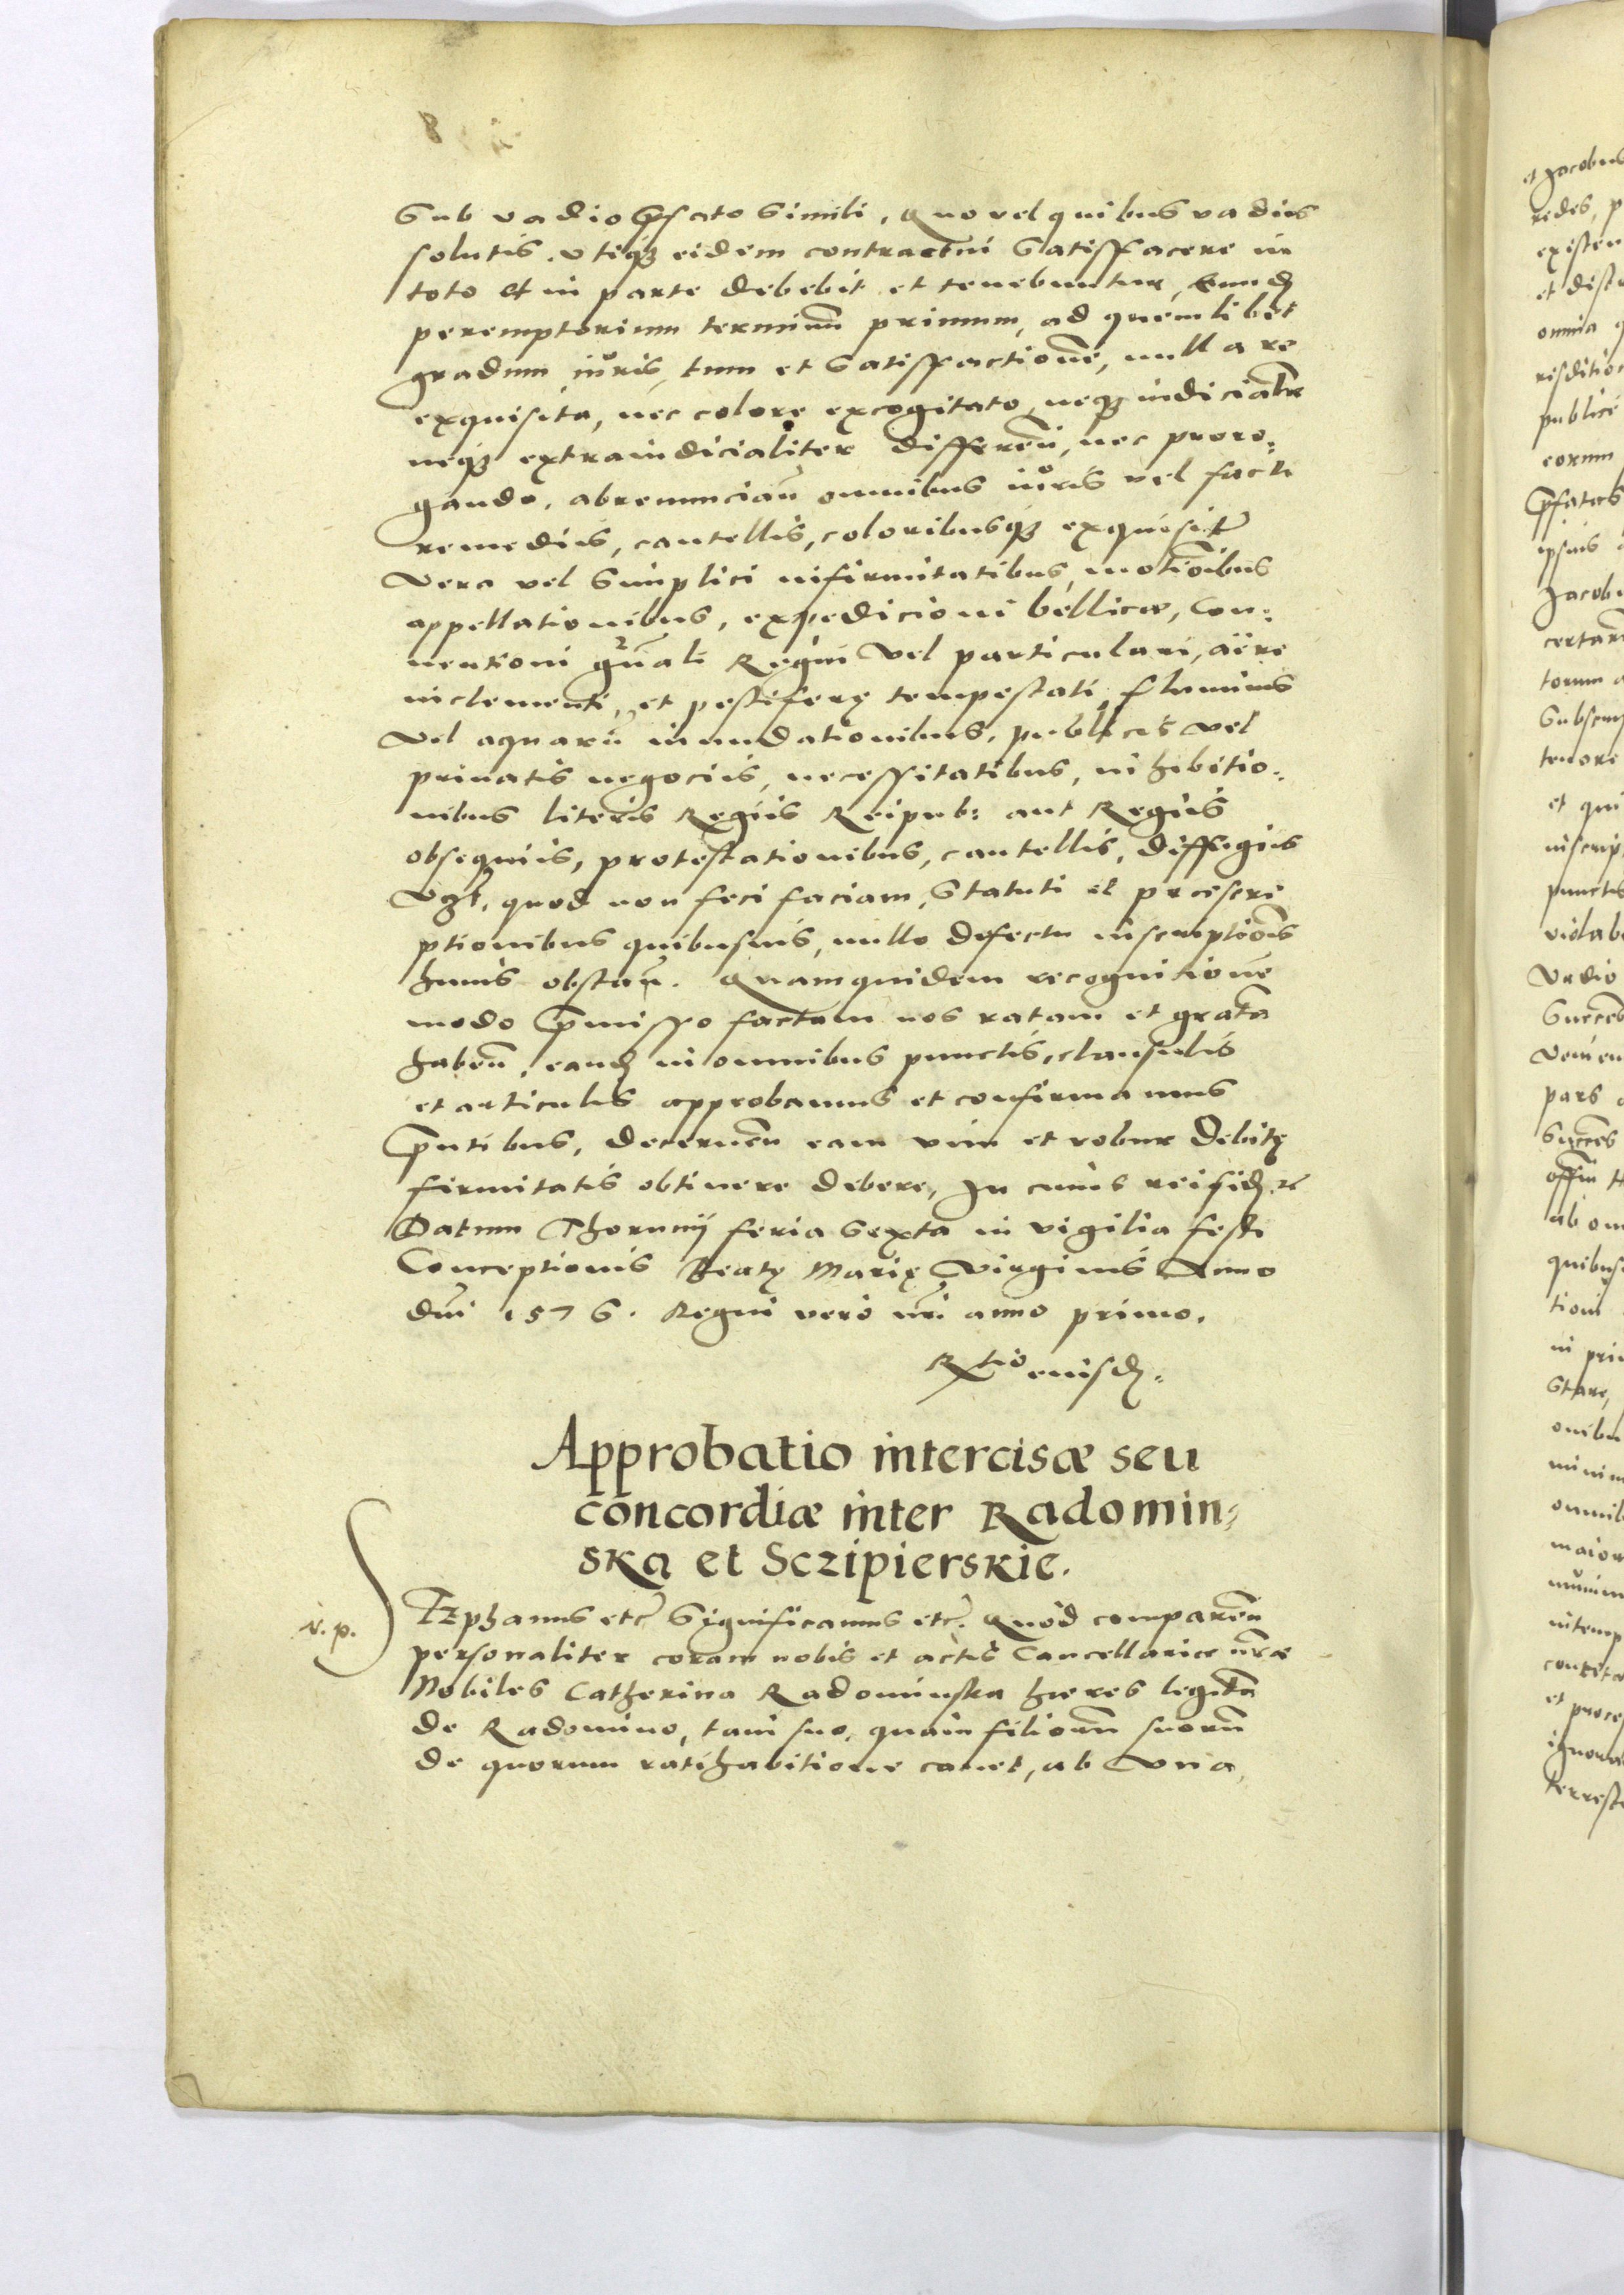 sub vadio p̄sato simili, Quo vel quibus vadiis
solutis. Utiq̃ eidem contractui satisfacere in
toto et in parte debebit et tenebuntur, Eund̃
peremptorium terminũ primum, ad quemlibet
gradum iůris, tum et satisfactionē, nulla re
exquisita, nec colore excogitato, neq̃ iudicialr̄
neq̃ extraiudicialiter differeñ, nec proro⸗
gando, abrenunciañ omnibus iůris vel facti
remediis, cautellis, coloribusq̃ exquisit̄
Vera vel simplici infirmitatibus, motiõibus
appellationibus, expedicioni bellicæ, Con⸗
uentioni gñali Regni Vel particulari, aëre
inclementi, et pestiferę tempestati, fluminis
Vel aquarũ inundationibus, publicis vel
priuatis negociis, necessitatibus, inhibitio⸗
nibus literis Regiis Reipub: aut Regiis
obsequiis, protestationibus, cautellis, diffugiis
Vzt, quod non feci faciam, Statuti et præscri
ptionibus quibusuis, nullo defectu inscriptiõis
huius obstañ. Quamquidem recognitionē
modo p̄misso factam nos ratam et gratã
habeñ, eand̃ in omnibus punctis, clausulis
et articulis approbamus et confirmamus
p̄ntibus, decerneñ eam vim et robur debitę
firmitatis obtinere debere, In cuius rei fid̃ etc
Datum Thorunij feria sexta in vigilia festi
Conceptionis Beatę Marię Virginis Anno
dñi 1576. Regni verò nr̃i anno primo.
Rtio eiusd̃.
Approbatio intercisæ seu
concordiæ inter Radomin⸗
ska et Sczipierskie.
r. p.
STephanus etc̃ Significamus etc̃. Quòd compareñ
personaliter coram nobis et actis Cancellariæ nr̃æ
Nobiles Catherina Radominska hæres legitã
de Radomino, tam suo, quàm filiorũ suorũ
de quorum ratihabitione cauet, ab Vna,